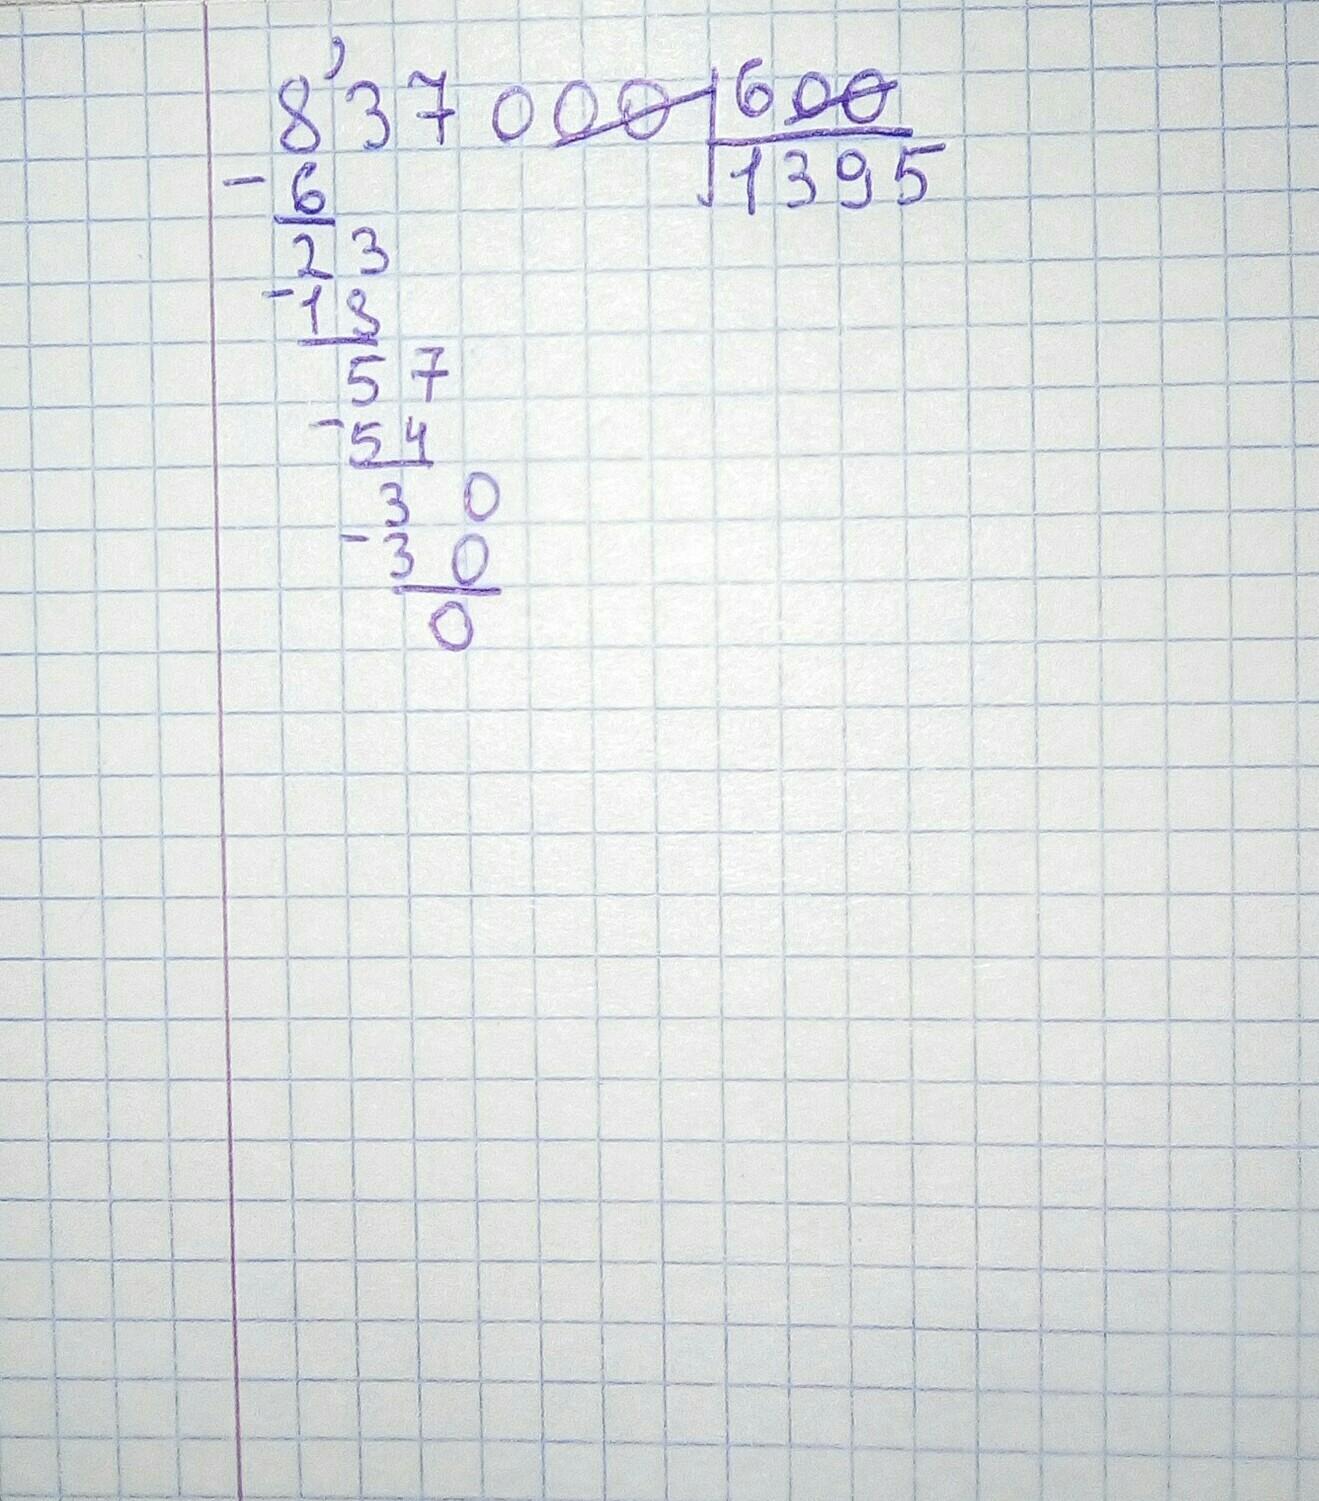 8'37000 600
- 6 1395
23
- 18
57
- 54
30
- 30
0